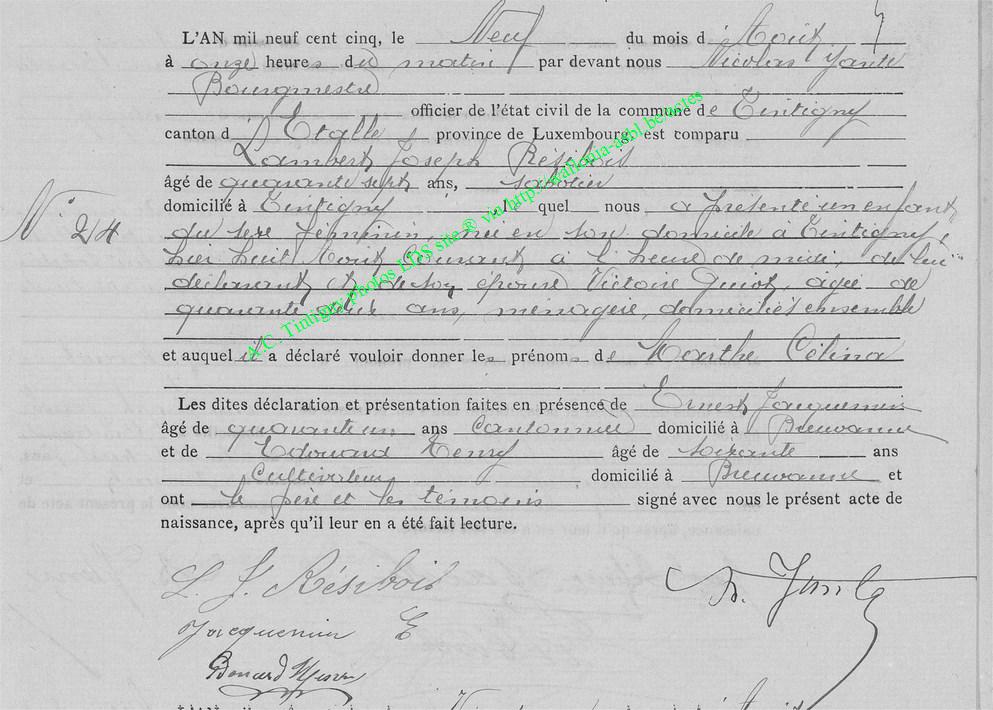 L'AN mil neuf cent cinq, le Neuf du mois d'Août
à onze heures du matin par devant nous Nicolas
Bourgmestre
officier de l'état civil de la commune de Tintigny
canton d'Etalle province de Luxembourg, est comparu
Lambert Joseph Résibois
âgé de quarante sept ans, sabotier
domicilié à Tintigny, le quel nous a présenté un enfant
N° 24
du sexe féminin, né en son domicile à Tintigny,
hier huit Août courant à l'heure de midi, de lui
déclarant et de son épouse Victoire Guiot, âgée de
quarante deux ans, ménagère, domiciliés ensemble
et auquel il a déclaré vouloir donner les prénoms de Marthe Célina
Les dites déclaration et présentation faites en présence de Ernest Jacquemin
âgé de quarante un ans Cantonnier domicilié à Breuvanne
et de Edouard Henry âgé de soixante ans
Cultivateur domicilié à Breuvanne et
ont le père et les témoins signé avec nous le présent acte de
naissance, après qu'il leur en a été fait lecture.
L. J. Résibois
Jacquemin E
Edouard Henry
A.C. Tintigny photos LDS site ® via http://wallonia-asbl.be/actes